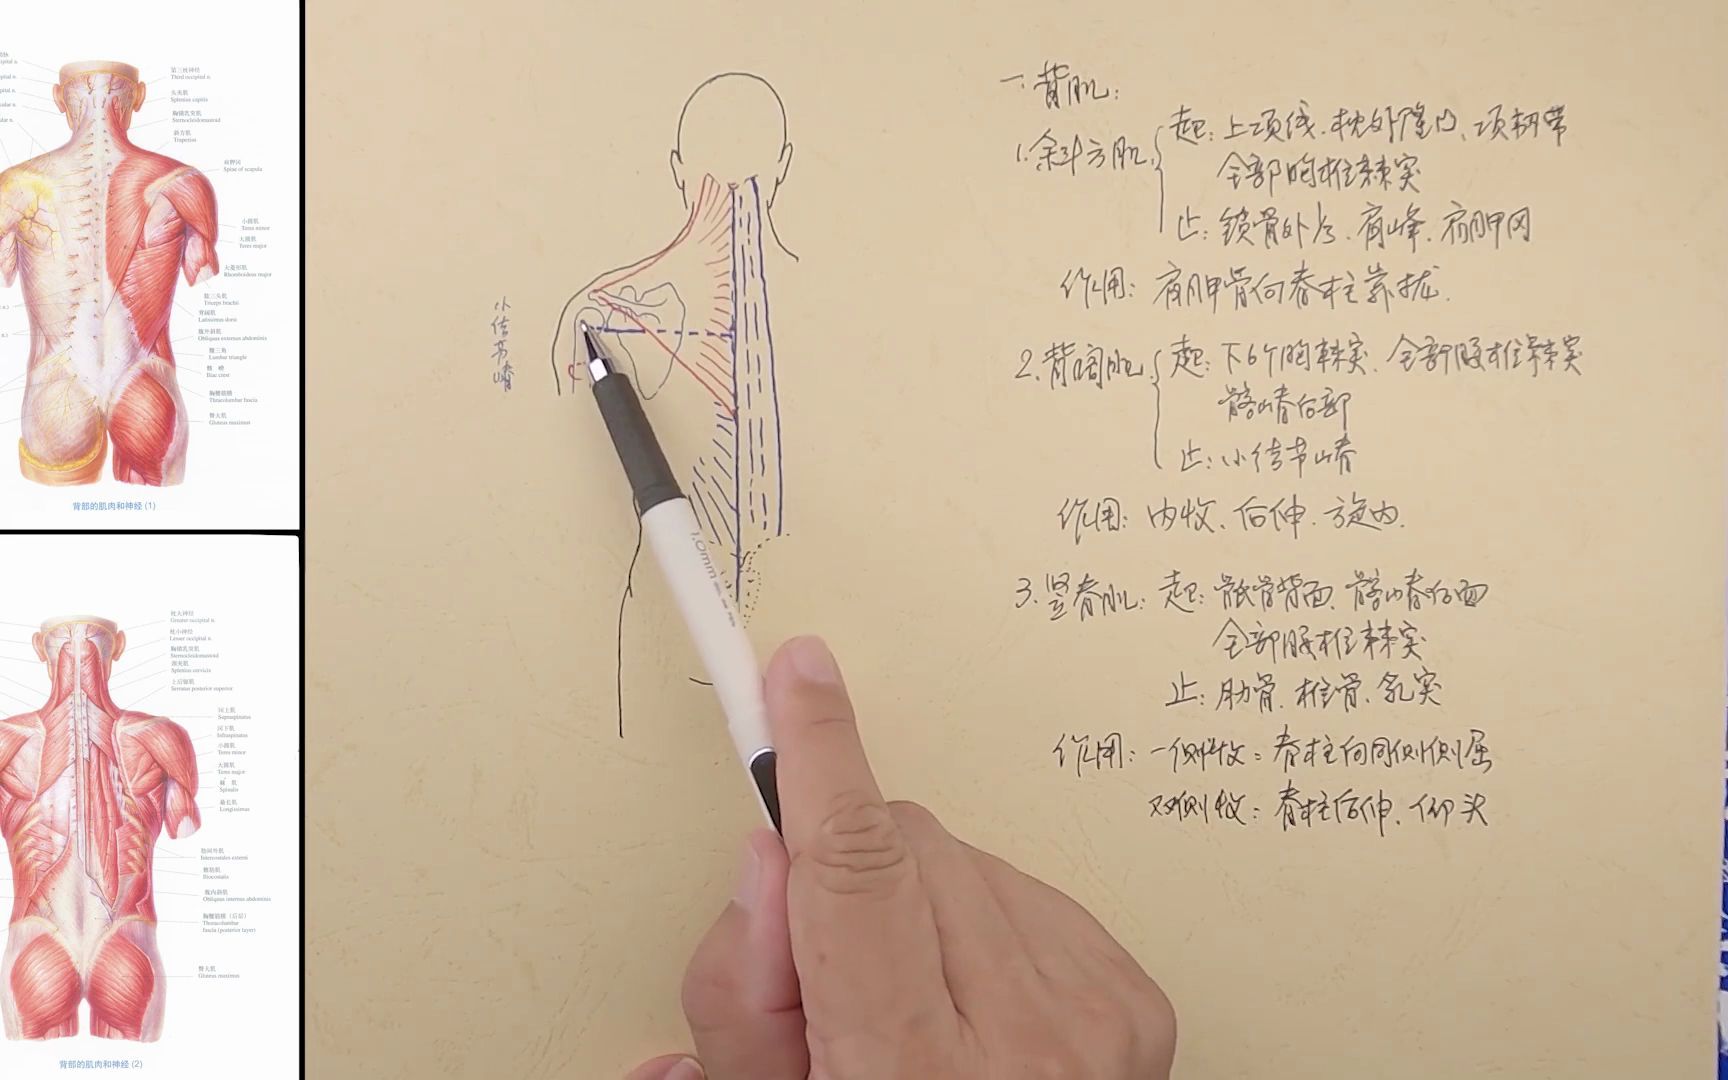 第三枕神经
Third occipital n.
头夹肌
Splenius capitis
胸锁乳突肌
Sternocleidomastoid
斜方肌
Trapezius
肩胛冈
Spine of scapula
小圆肌
Teres minor
大圆肌
Teres major
大菱形肌
Rhomboideus major
肱三头肌
Triceps brachii
背阔肌
Latissimus dorsi
腹外斜肌
Obliquus externus abdominis
腰三角
Lumbar triangle
髂嵴
Iliac crest
胸腰筋膜
Thoracolumbar fascia
臀大肌
Gluteus maximus
背部的肌肉和神经 (1)
枕大神经
Greater occipital n.
枕小神经
Lesser occipital n.
胸锁乳突肌
Sternocleidomastoid
颈夹肌
Splenius cervicis
上后锯肌
Serratus posterior superior
冈上肌
Supraspinatus
冈下肌
Infraspinatus
小圆肌
Teres minor
大圆肌
Teres major
棘肌
Spinalis
最长肌
Longissimus
肋间外肌
Intercostales externi
髂肋肌
Iliocostalis
腹内斜肌
Obliquus internus abdominis
胸腰筋膜（后层）
Thoracolumbar
fascia (posterior layer)
臀大肌
Gluteus maximus
背部的肌肉和神经 (2)
小结节嵴
1.0mm
一.背肌:
1.斜方肌 起:上项线.枕外隆凸、项韧带
全部胸椎棘突
止:锁骨外1/3.肩峰.肩胛冈
作用:肩胛骨向脊柱靠拢.
2.背阔肌 起:下6个胸棘突.全部腰椎棘突
髂嵴后部
止:小结节嵴
作用:内收、后伸.旋内.
3.竖脊肌:起:骶骨背面.髂嵴后面
全部腰椎棘突
止:肋骨.椎骨.乳突
作用:一侧收:脊柱向同侧侧屈
双侧收:脊柱后伸.仰头